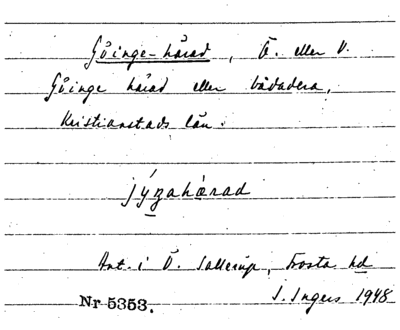 Göinge-härad, Ö. eller V.
Göinge härad eller bådadera,
Kristianstads län.
jýngahærad
Ant. i Ö. Sallerup, Frosta hd
Nr 5353. I. Ingers 1948